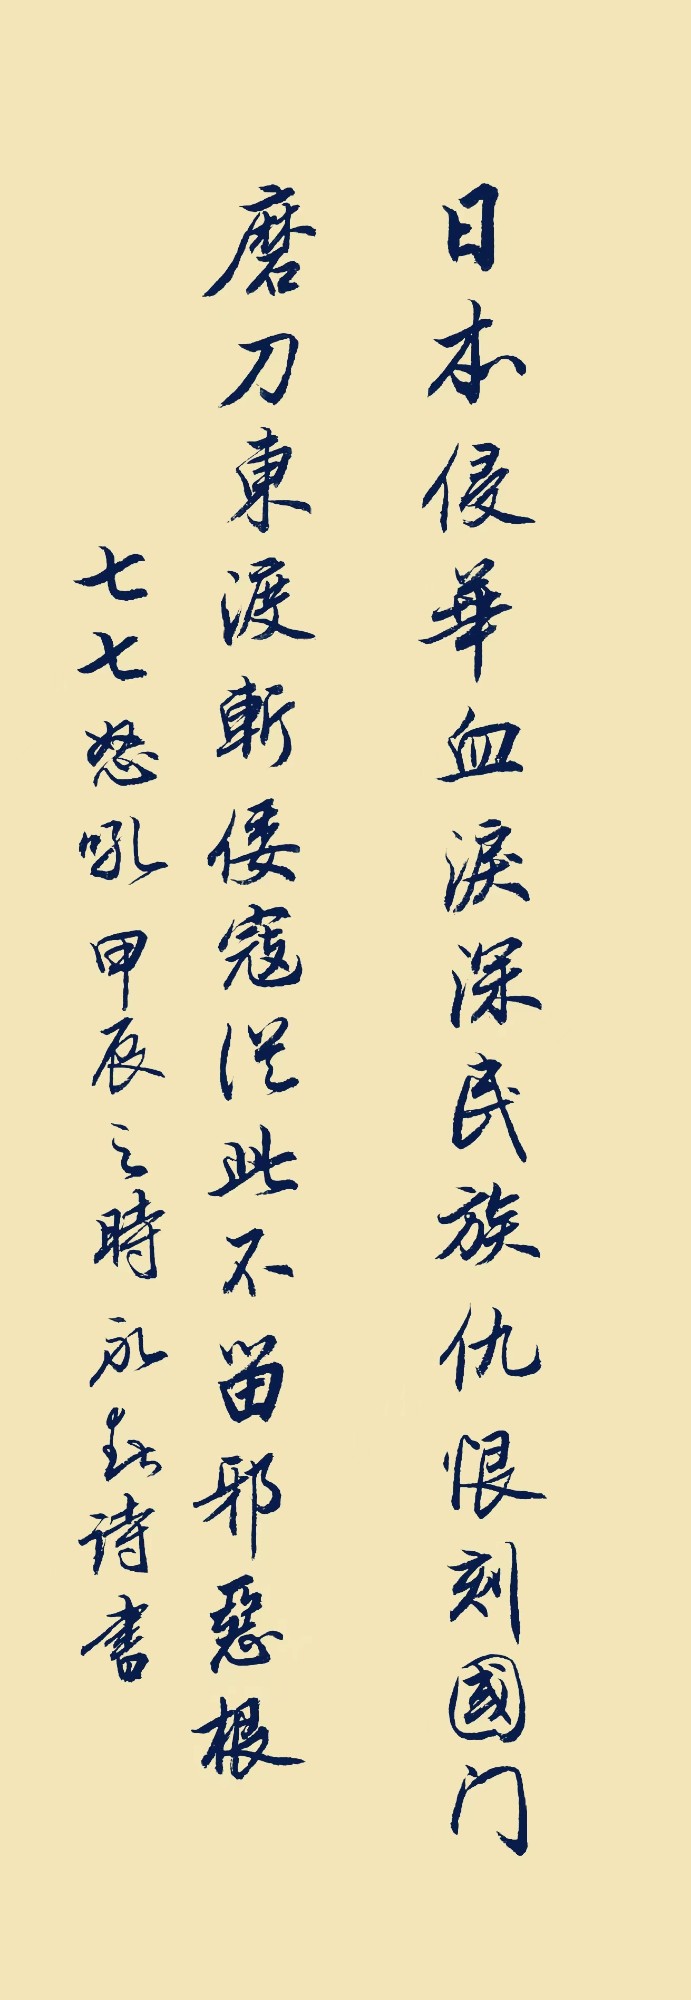 日本侵華血淚深民族仇恨刻國门
磨刀東渡斬倭寇從此不留邪惡根
七七怒吼甲辰之時永春诗書